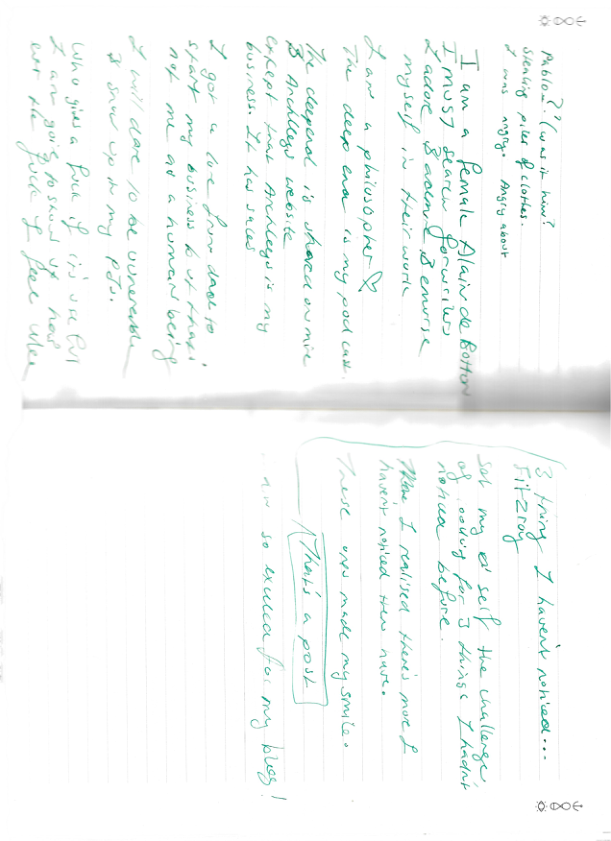 Pablo-?? (was it him?
Stealing piles of clothes.
I was angry. Angry about
I am a female Alain de Botton
I must search for writers
I adore & admire & emurse
myself in their work
I am a philosopher
The deep end is my podcast.
The deepend is shared on mine
& Archleys website
except that Archleys is my
business. It has sales
I got a love from dare to
start my business b 4 that's
not me as a human being
I will dare to be vunerable
& show up in my PJs.
Who gives a fuck if it's useful
I am going to show up how
ever the fuck I feel like
3 thing I haven't noticed...
Fitzroy
Set my self the challenge
of looking for 3 things I hadn't
noticed before.
Then I realised there's more I
havent noticed then have.
These ones made my smile.
That's a post
am so excited for my blog!